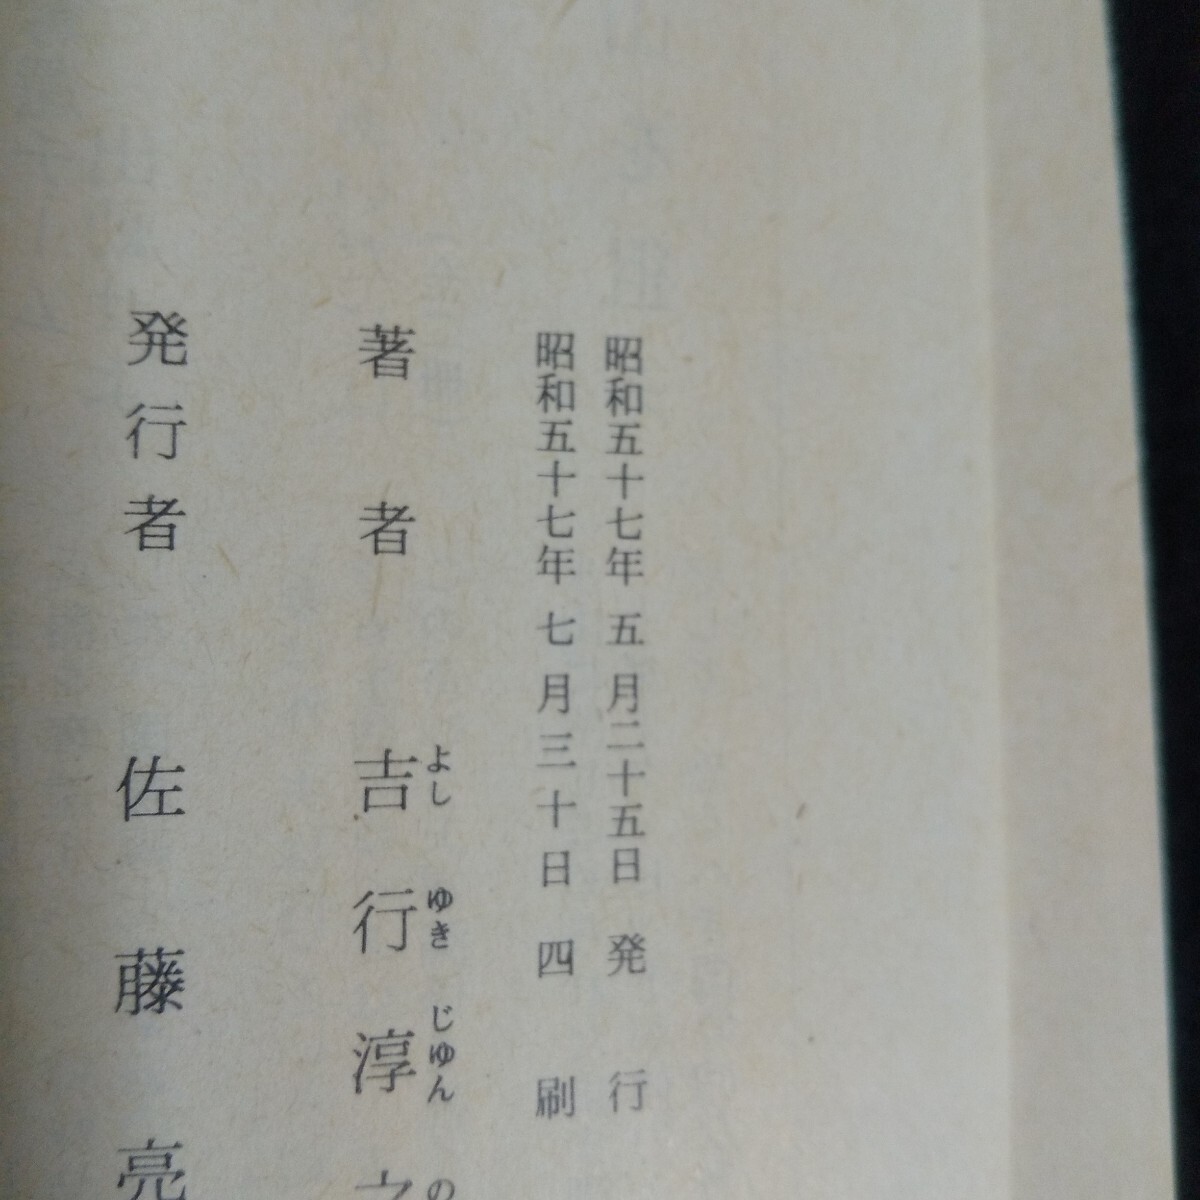 昭和五十七年 五 月二十五日 発 行
昭和五十七年 七 月 三 十 日 四 刷
著 者 吉行淳之
よし ゆき じゆん の
発行者 佐藤亮